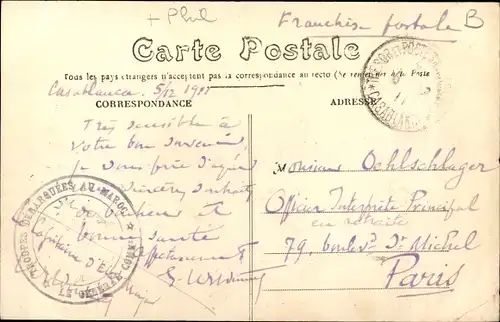 + Phil
Franchise postale B
Carte Postale
Tous les pays étrangers n'acceptent pas la correspondance au recto (Se renseigner à la Poste
Casablanca 5/12
CORRESPONDANCE
ADRESSE
TRESOR ET POSTES
CASABLANCA
Très sensible à
votre bon souvenir,
je vous prie d'agréer
sincères souhaits
de bonheur et
bonne santé
Affectueusement
TROUPES DÉBARQUÉES AU MAROC
LE GÉNÉRAL
Capitaine d'
Monsieur Oehlschlager
Officier Interprète Principal
en retraite
79, boulevd St Michel
Paris